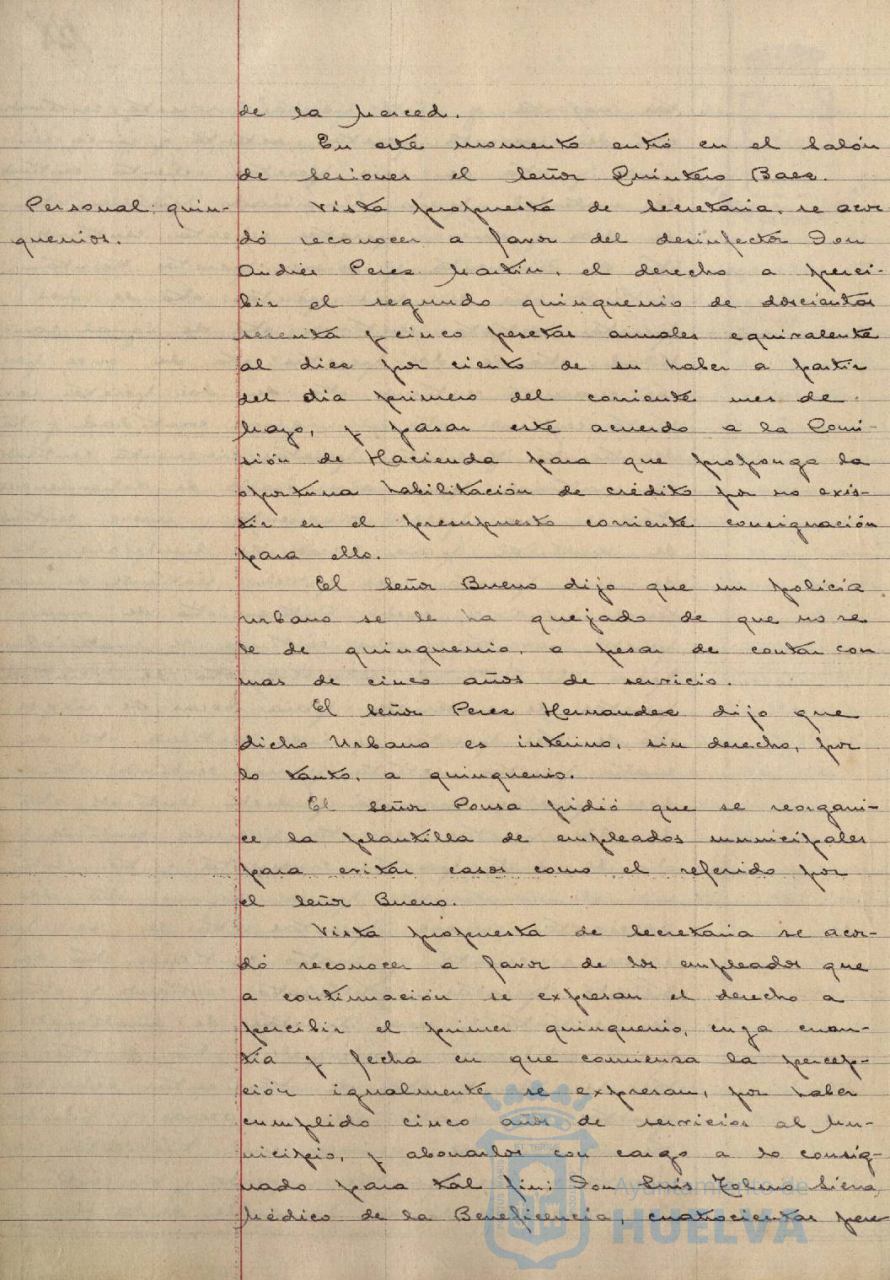 de la Merced.
En este momento entró en el Salón
de Sesiones el Señor Quintero Baez.
Personal: quin-
quenios.
Vista propuesta de Secretaria, se acor
dó reconocer a favor del desinfector Don
Andres Perez Martin, el derecho a perci-
bir el segundo quinquenio de doscientas
setenta y cinco pesetas anuales equivalente
al diez por ciento de su haber a partir
del dia primero del corriente mes de
Mayo, y pasar este acuerdo a la Comi-
sión de Hacienda para que proponga la
oportuna habilitación de crédito por no exis-
tir en el presupuesto corriente consignación
para ello.
El Señor Bueno dijo que un policia
urbano se le ha quejado de que no se
le de quinquenio, a pesar de contar con
mas de cinco años de servicio.
El Señor Perez Hernandez dijo que
dicho Urbano es interino, sin derecho, por
lo tanto, a quinquenio.
El Señor Ponsa pidió que se reorgani-
ce la plantilla de empleados municipales
para evitar casos como el referido por
el Señor Bueno.
Vista propuesta de Secretaria se acor-
dó reconocer a favor de los empleados que
a continuación se expresan el derecho a
percibir el primer quinquenio, cuya cuan-
tia y fecha en que comienza la percep-
ción igualmente se expresan, por haber
cumplido cinco años de servicios al Mu-
nicipio, y abonarlos con cargo a lo consig-
nado para tal fin: Don Luis Sierra,
Médico de la Beneficencia, cuatrocientas pese
Ayuntamiento de
HUELVA